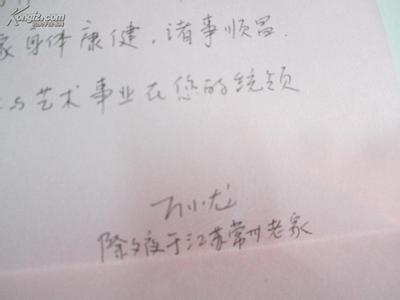 Kongfz.com
家身体康健,诸事顺昌.
与艺术事业在您的统领
小龙
除夕夜于江苏常州老家